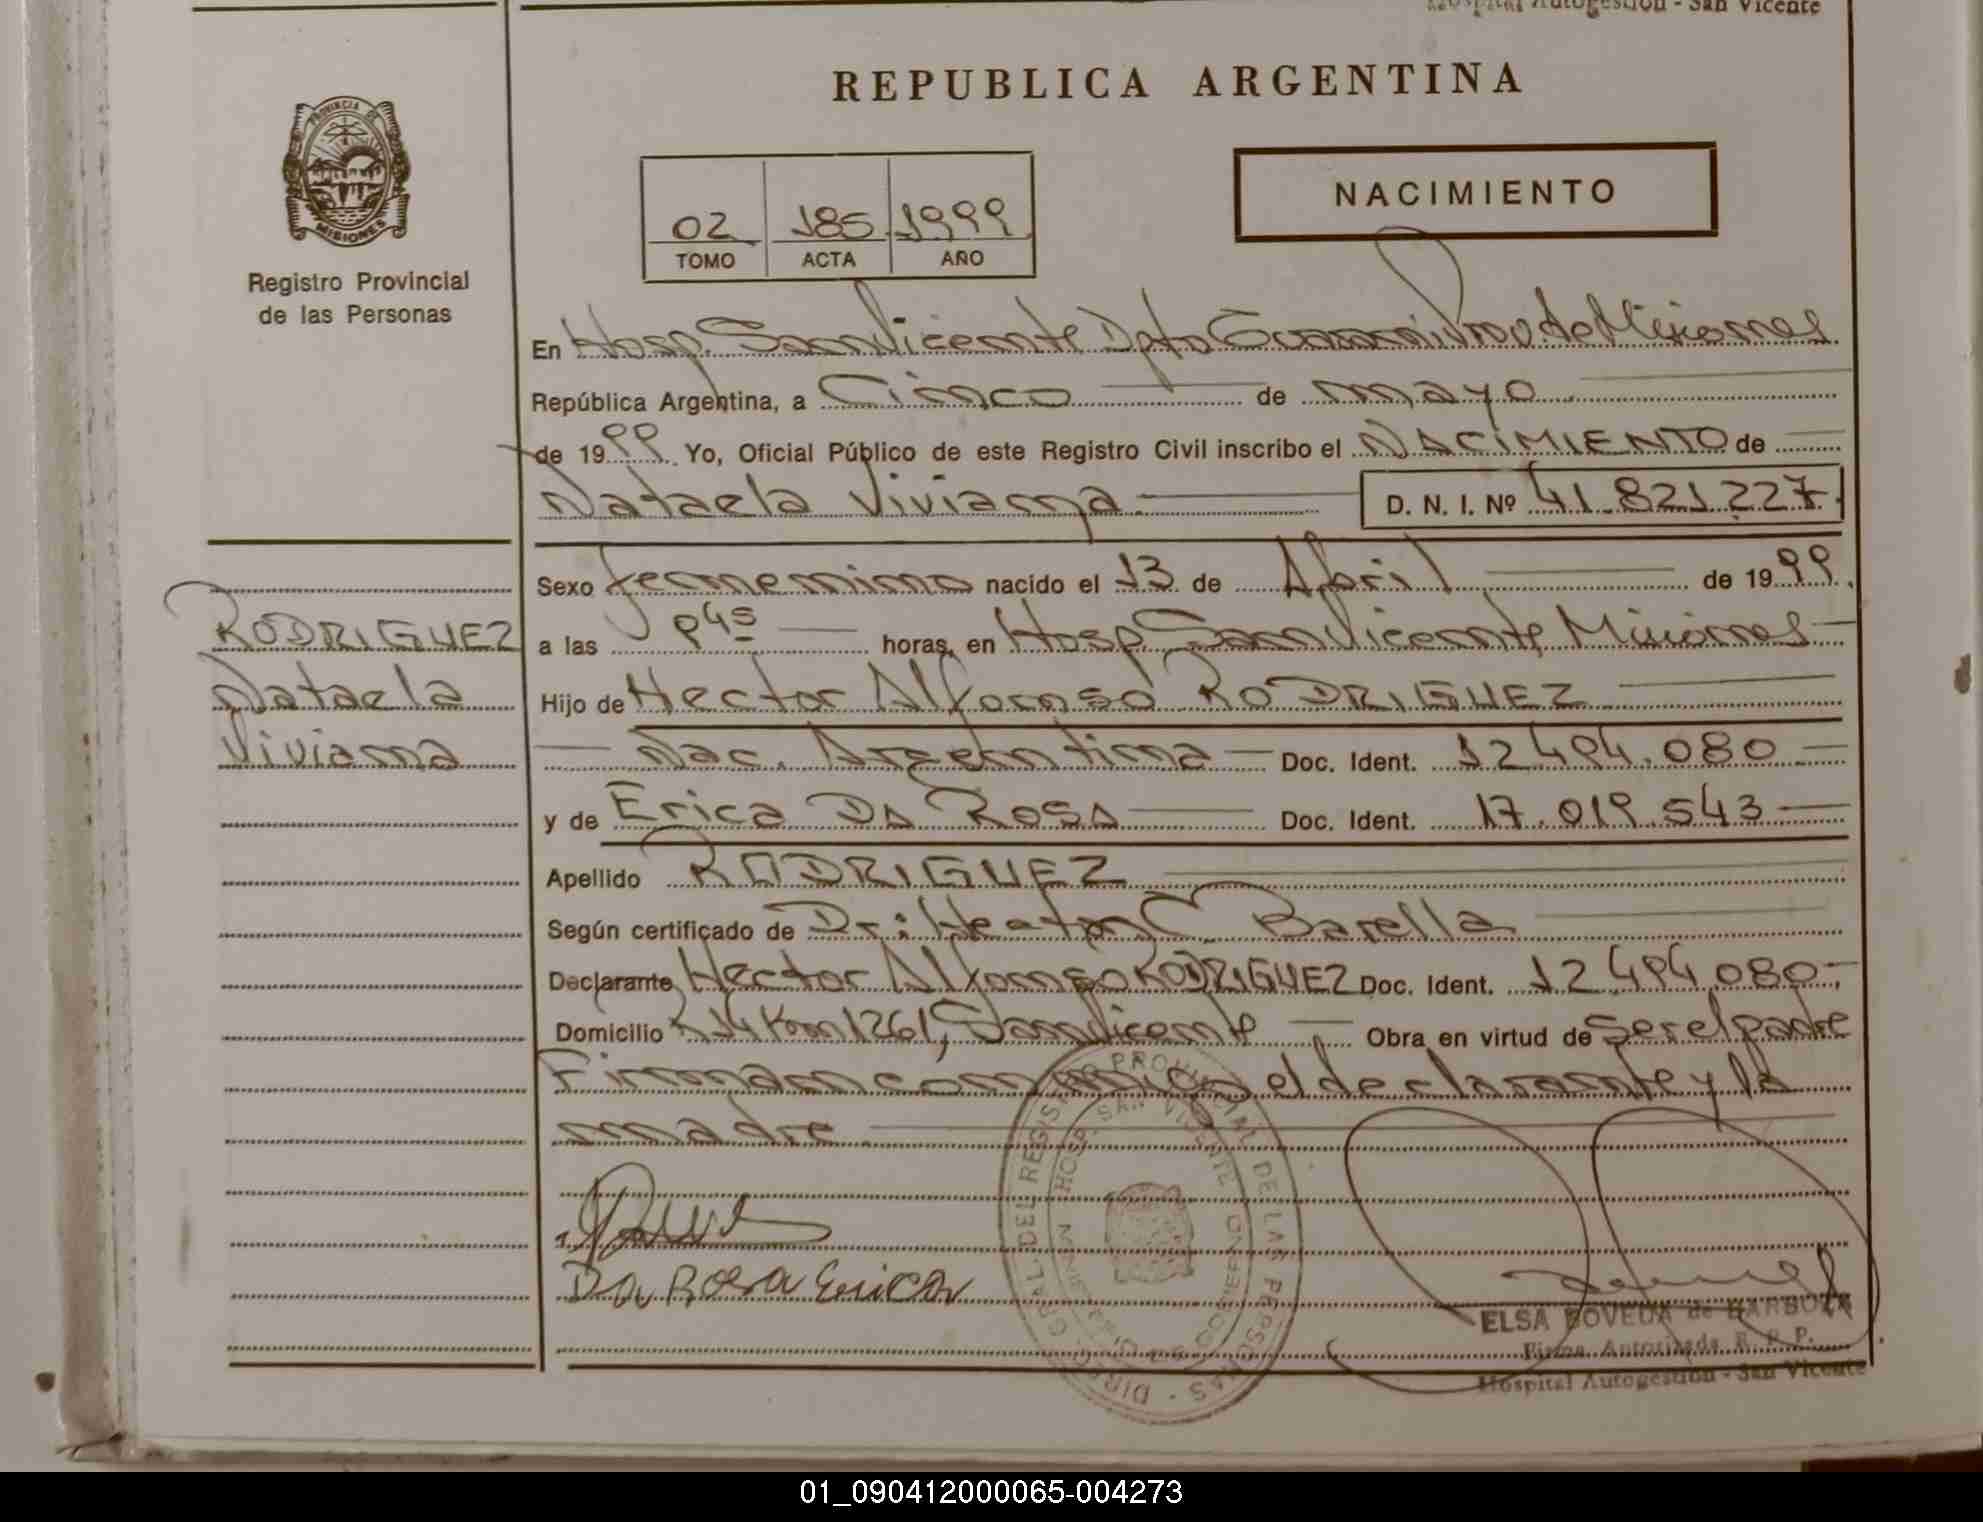 Hospital Autogestion - San Vicente
REPUBLICA ARGENTINA
PROVINCIA DE
MISIONES
Registro Provincial
de las Personas
NACIMIENTO
02 185 1999
TOMO ACTA AÑO
En Hosp. San Vicente Dpto Guaraní Prov. de Misiones
República Argentina, a Cinco de mayo
de 1999 Yo, Oficial Público de este Registro Civil inscribo el NACIMIENTO de
Nataela Viviana D. N. I. Nº 41.821.227
Sexo femenino nacido el 13 de Abril de 1999
a las 945 horas, en Hosp. San Vicente Misiones
Hijo de Hector Alfonso RODRIGUEZ
Nac. Argentina Doc. Ident. 12.494.080
y de Erica Da Rosa Doc. Ident. 17.019.543
Apellido RODRIGUEZ
Según certificado de Dr: C. Barella
Declarante Hector Alfonso RODRIGUEZ Doc. Ident. 12.494.080
Domicilio R 14 Km 1261, San Vicente Obra en virtud de ser el padre
Firman conmigo el declarante y la
madre
RODRIGUEZ
Nataela
Viviana
Da Rosa Erica
DIRECC. GRAL. DEL REGISTRO PROVINCIAL DE LAS PERSONAS
HOSP. SAN VICENTE
ELSA BOVEDA de BARBOZA
Firma Autorizada R. P. P.
Hospital Autogestion - San Vicente
01_090412000065-004273